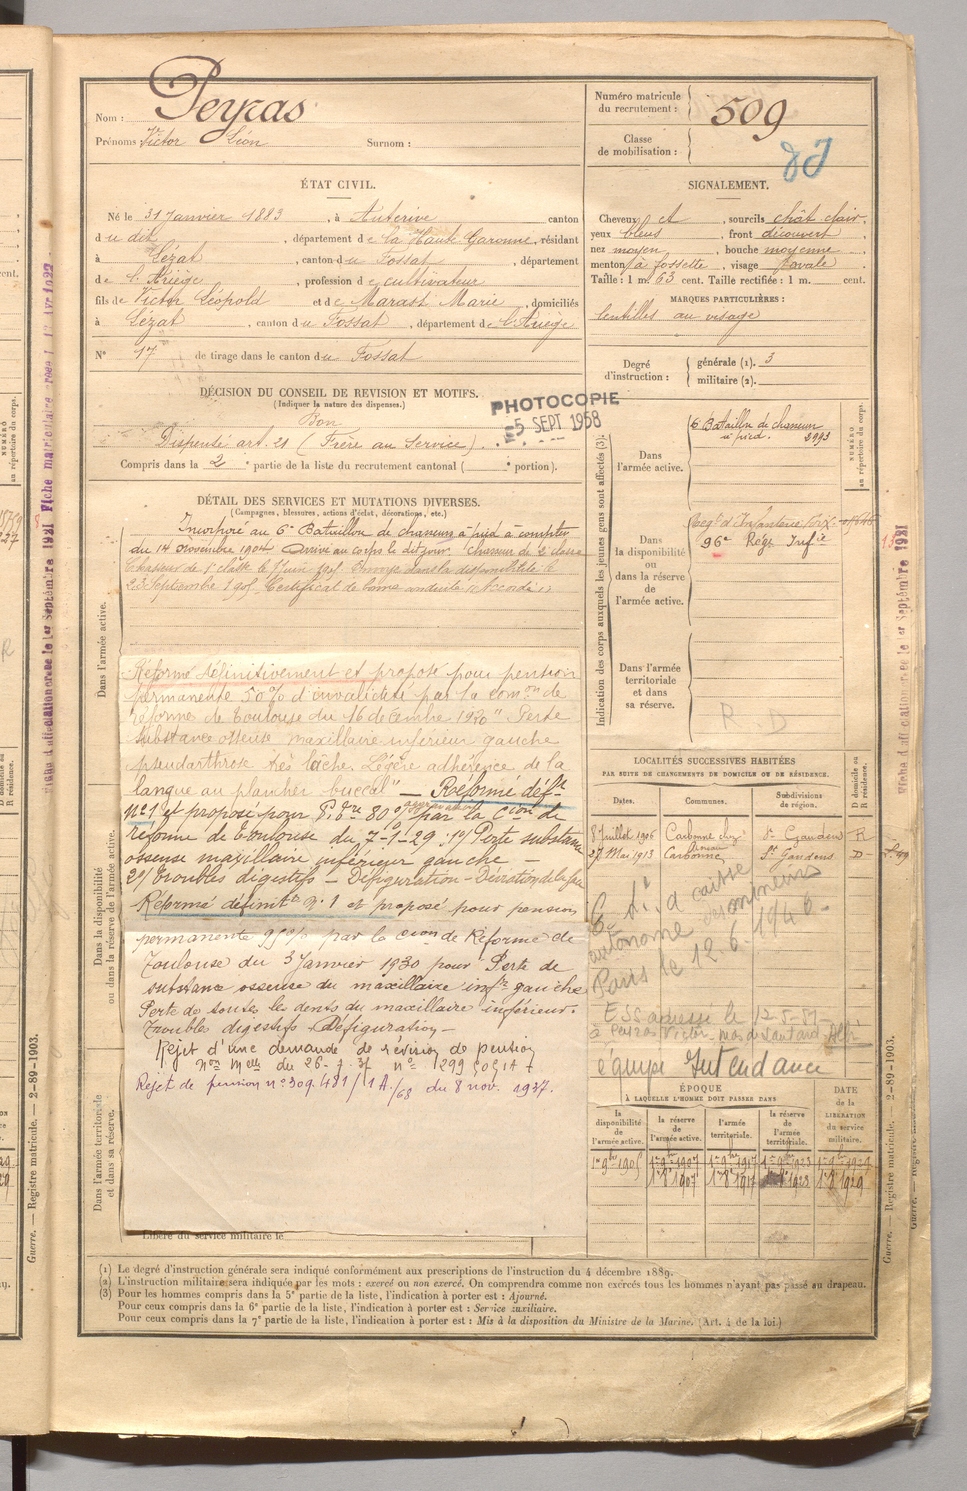 Nom : Peyras
Prénoms : Victor Léon Surnom :
Numéro matricule du recrutement : 509
Classe de mobilisation :
ÉTAT CIVIL.
Né le 31 Janvier 1883, à Auterive canton
du dit, département de la Haute Garonne, résidant
à Lézat, canton du Fossat, département
de l'Ariège, profession de cultivateur
fils de Victor Léopold et de Marast Marie, domiciliés
à Lézat, canton du Fossat, département de l'Ariège
N° 17 de tirage dans le canton du Fossat
SIGNALEMENT.
Cheveux et, sourcils chât clair,
yeux bleus, front découvert,
nez moyen, bouche moyenne,
menton à fossette, visage ovale
Taille : 1 m. 63 cent. Taille rectifiée : 1 m. cent.
MARQUES PARTICULIÈRES :
lentilles au visage
Degré d'instruction : générale (1). 3
militaire (2).
DÉCISION DU CONSEIL DE REVISION ET MOTIFS.
(Indiquer la nature des dispenses.)
Bon
Dispensé art. 21 (Frère au Service).
Compris dans la 2e partie de la liste du recrutement cantonal ( e portion).
PHOTOCOPIE
5 SEPT 1958
DÉTAIL DES SERVICES ET MUTATIONS DIVERSES.
(Campagnes, blessures, actions d'éclat, décorations, etc.)
Incorporé au 6e Bataillon de chasseurs à pied à compter
du 14 novembre 1904 Arrivé au corps le dit jour. Chasseur de 2e classe
Chasseur de 1e classe le Juin 1905 Envoyé dans la disponibilité le
23 Septembre 1905 Certificat de bonne conduite Accordé
Réformé définitivement et proposé pour pension
permanente 50% d'invalidité par la comon de
réforme de Toulouse du 16 décembre 1920 "Perte
substance osseuse maxillaire inférieur gauche
pseudarthrose très lâche. Légère adhérence de la
langue au plancher buccal" — Réformé déft
N° 1 et proposé pour P. 80% par la Cion de
réforme de Toulouse du 7-1-29 1°/ Perte substance
osseuse maxillaire inférieur gauche —
2°/ troubles digestifs — Défiguration —
Réformé définitt N° 1 et proposé pour pension
permanente 95% par la Cion de Réforme de
Toulouse du 3 Janvier 1930 pour Perte de
substance osseuse du maxillaire infr gauche
Perte de toutes les dents du maxillaire inférieur.
Troubles digestifs — Défiguration —
Rejet d'une demande de révision de pension
du 26-7-37 n° 1299
Rejet de pension n° 309.481/1A/68 du 8 nov. 1937.
Libéré du service militaire le
Dans l'armée active.
Dans la disponibilité ou dans la réserve de l'armée active.
Dans l'armée territoriale et dans sa réserve.
Indication des corps auxquels les jeunes gens sont affectés (3).
NUMÉRO au répertoire du corps.
Dans l'armée active.
6 Bataillon de chasseurs
à pied. 2993
Dans la disponibilité ou dans la réserve de l'armée active.
Regt d'Infanterie
96e Régt Infie
Dans l'armée territoriale et dans sa réserve.
R. D
LOCALITÉS SUCCESSIVES HABITÉES
PAR SUITE DE CHANGEMENTS DE DOMICILE OU DE RÉSIDENCE.
Dates. Communes. Subdivisions de région. D domicile ou R résidence.
8 Juillet 1906 Carbonne St Gaudens R
28 Mai 1913 Carbonne St Gaudens D
autonome
Paris le 12.6.1946.
équipe Intendance
ÉPOQUE
À LAQUELLE L'HOMME DOIT PASSER DANS
la disponibilité de l'armée active. la réserve de l'armée active. l'armée territoriale. la réserve de l'armée territoriale. DATE de la LIBÉRATION du service militaire.
1er 9bre 1905 1er 9bre 1907 1er 9bre 1917 1er 9bre 1923 1er 9bre 1929
1er 8 1907 1er 8 1917 1923 1er 8 1929
(1) Le degré d'instruction générale sera indiqué conformément aux prescriptions de l'instruction du 4 décembre 1889.
(2) L'instruction militaire sera indiquée par les mots : exercé ou non exercé. On comprendra comme non exercés tous les hommes n'ayant pas passé au drapeau.
(3) Pour les hommes compris dans la 5e partie de la liste, l'indication à porter est : Ajourné.
Pour ceux compris dans la 6e partie de la liste, l'indication à porter est : Service auxiliaire.
Pour ceux compris dans la 7e partie de la liste, l'indication à porter est : Mis à la disposition du Ministre de la Marine. (Art. 4 de la loi.)
Guerre. — Registre matricule. — 2-89-1903.